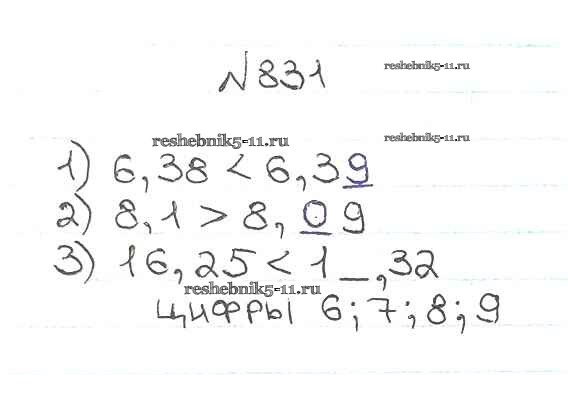 №831
reshebnik5-11.ru
reshebnik5-11.ru
reshebnik5-11.ru
1) 6,38 < 6,39
2) 8,1 > 8,09
3) 16,25 < 1_,32
reshebnik5-11.ru
цифры 6; 7; 8; 9